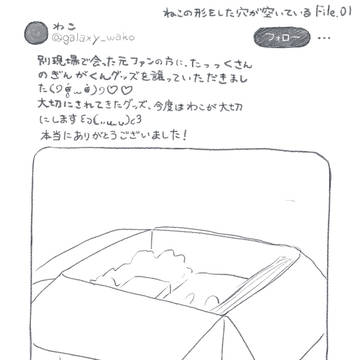 ねこの形をした穴が空いている File.01
わこ
@galaxy_wako
フォロー
別現場で会った元ファンの方に、たっっくさん
のぎんがくんグッズを譲っていただきまし
た(

大切にされてきたグッズ、今度はわこが大切
にします
本当にありがとうございました!